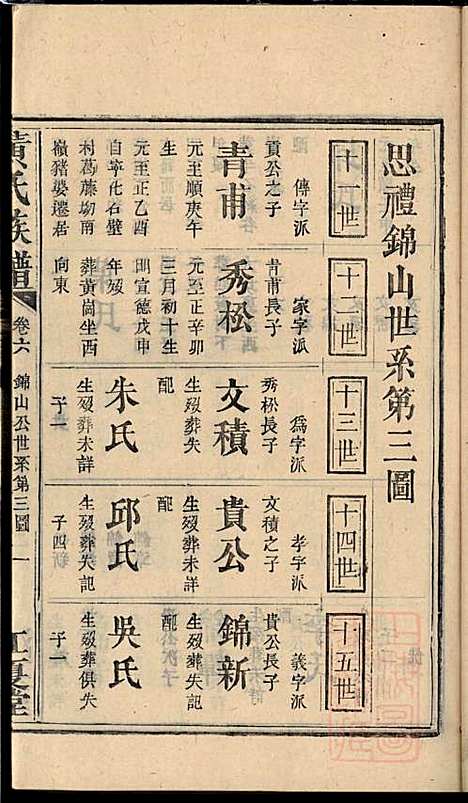 思禮錦山世系第三圖
十一世
傳字派
貢公之子
青甫
元至順庚午
生
元至正乙酉
自寧化石壁
利葛藤坳南
嶺豬婆遷居
十二世
家字派
青甫長子
秀松
元至正辛卯
三月初十生
明宣德戊申
年歿
葬黃崗坐西
向東
十三世
為字派
秀松長子
文積
生歿葬失
配
朱氏
生歿葬未詳
子一
十四世
孝字派
文積之子
貴公
生歿葬未詳
配
邱氏
生歿葬失記
子四新
十五世
義字派
貴公長子
錦新
生歿葬失記
配
吳氏
生歿葬俱失
子一
黃氏族譜
卷六
錦山公世系第三圖
一
江夏堂